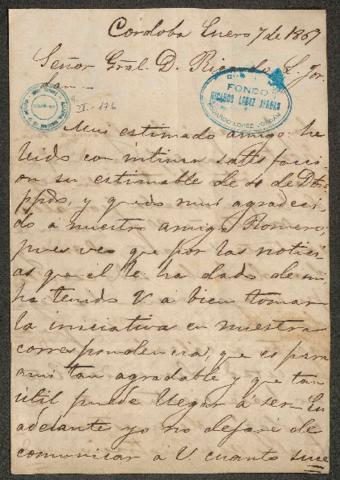 Cordoba Enero 7 de 1867
Señor Gral. D. Ricardo L. Jor
dan
FONDO
RICARDO LOPEZ JORDAN
II-176
Mui estimado amigo: he
leido con intima satisfacci
on su estimable de 4 de Dbre
ppdo, y quedo mui agradeci
do a nuestro amigo Romero,
pues veo que por las notici
as que el le ha dado de mi
ha tenido V a bien tomar
la iniciativa en nuestra
correspondencia, que es para
mi tan agradable y que tan
util puede llegar á ser. En
adelante yo no dejaré de
comunicar a V cuanto suce